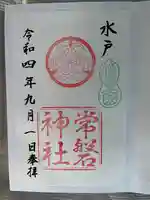 水戸
常磐神社
令和四年九月一日参拝